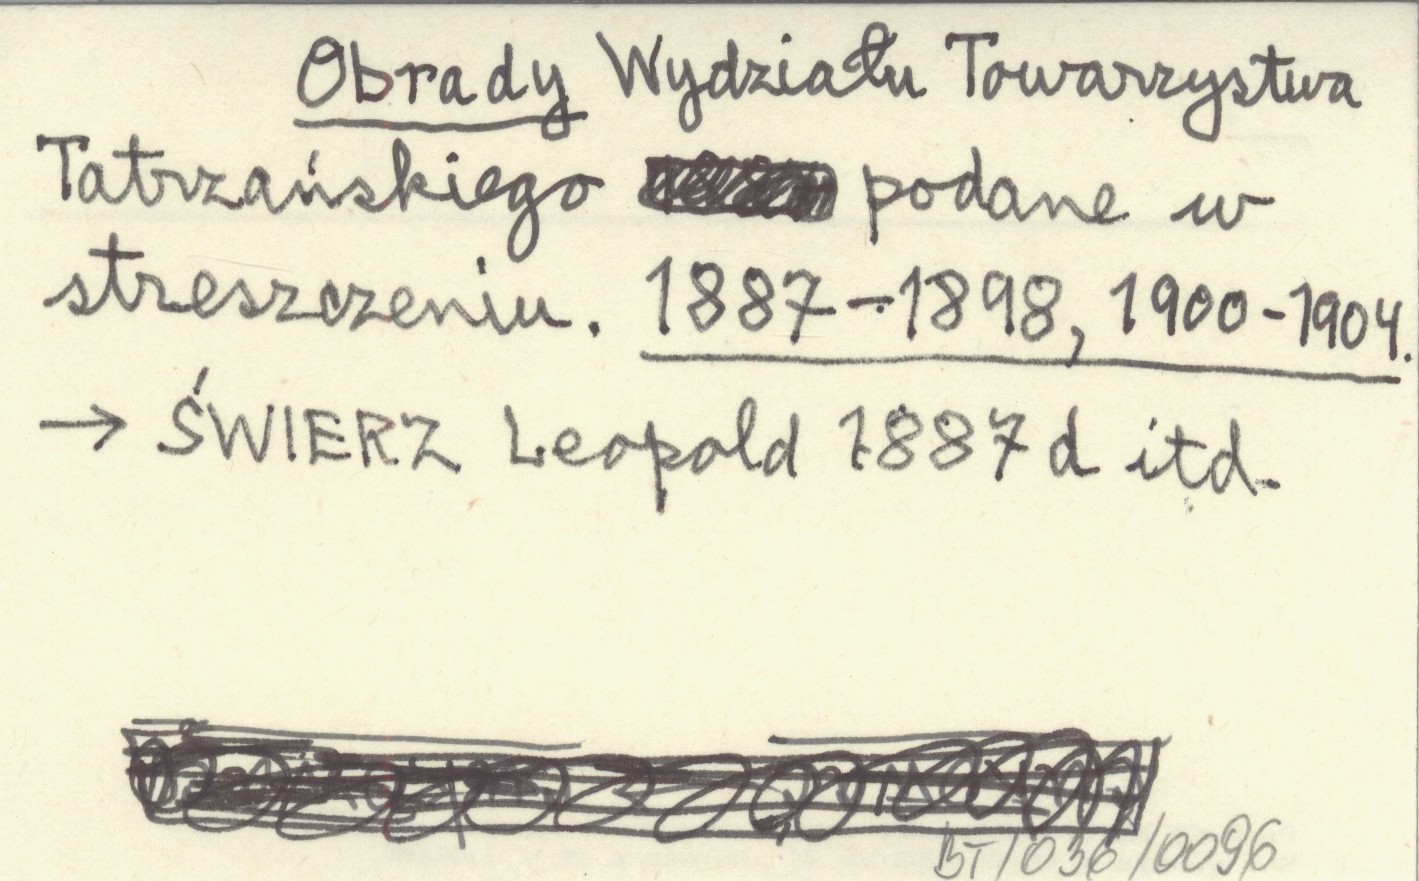 Obrady Wydziału Towarzystwa
Tatrzańskiego podane w
streszczeniu. 1887-1898, 1900-1904.
→ ŚWIERZ Leopold 1887 d itd.
BT/036/0096